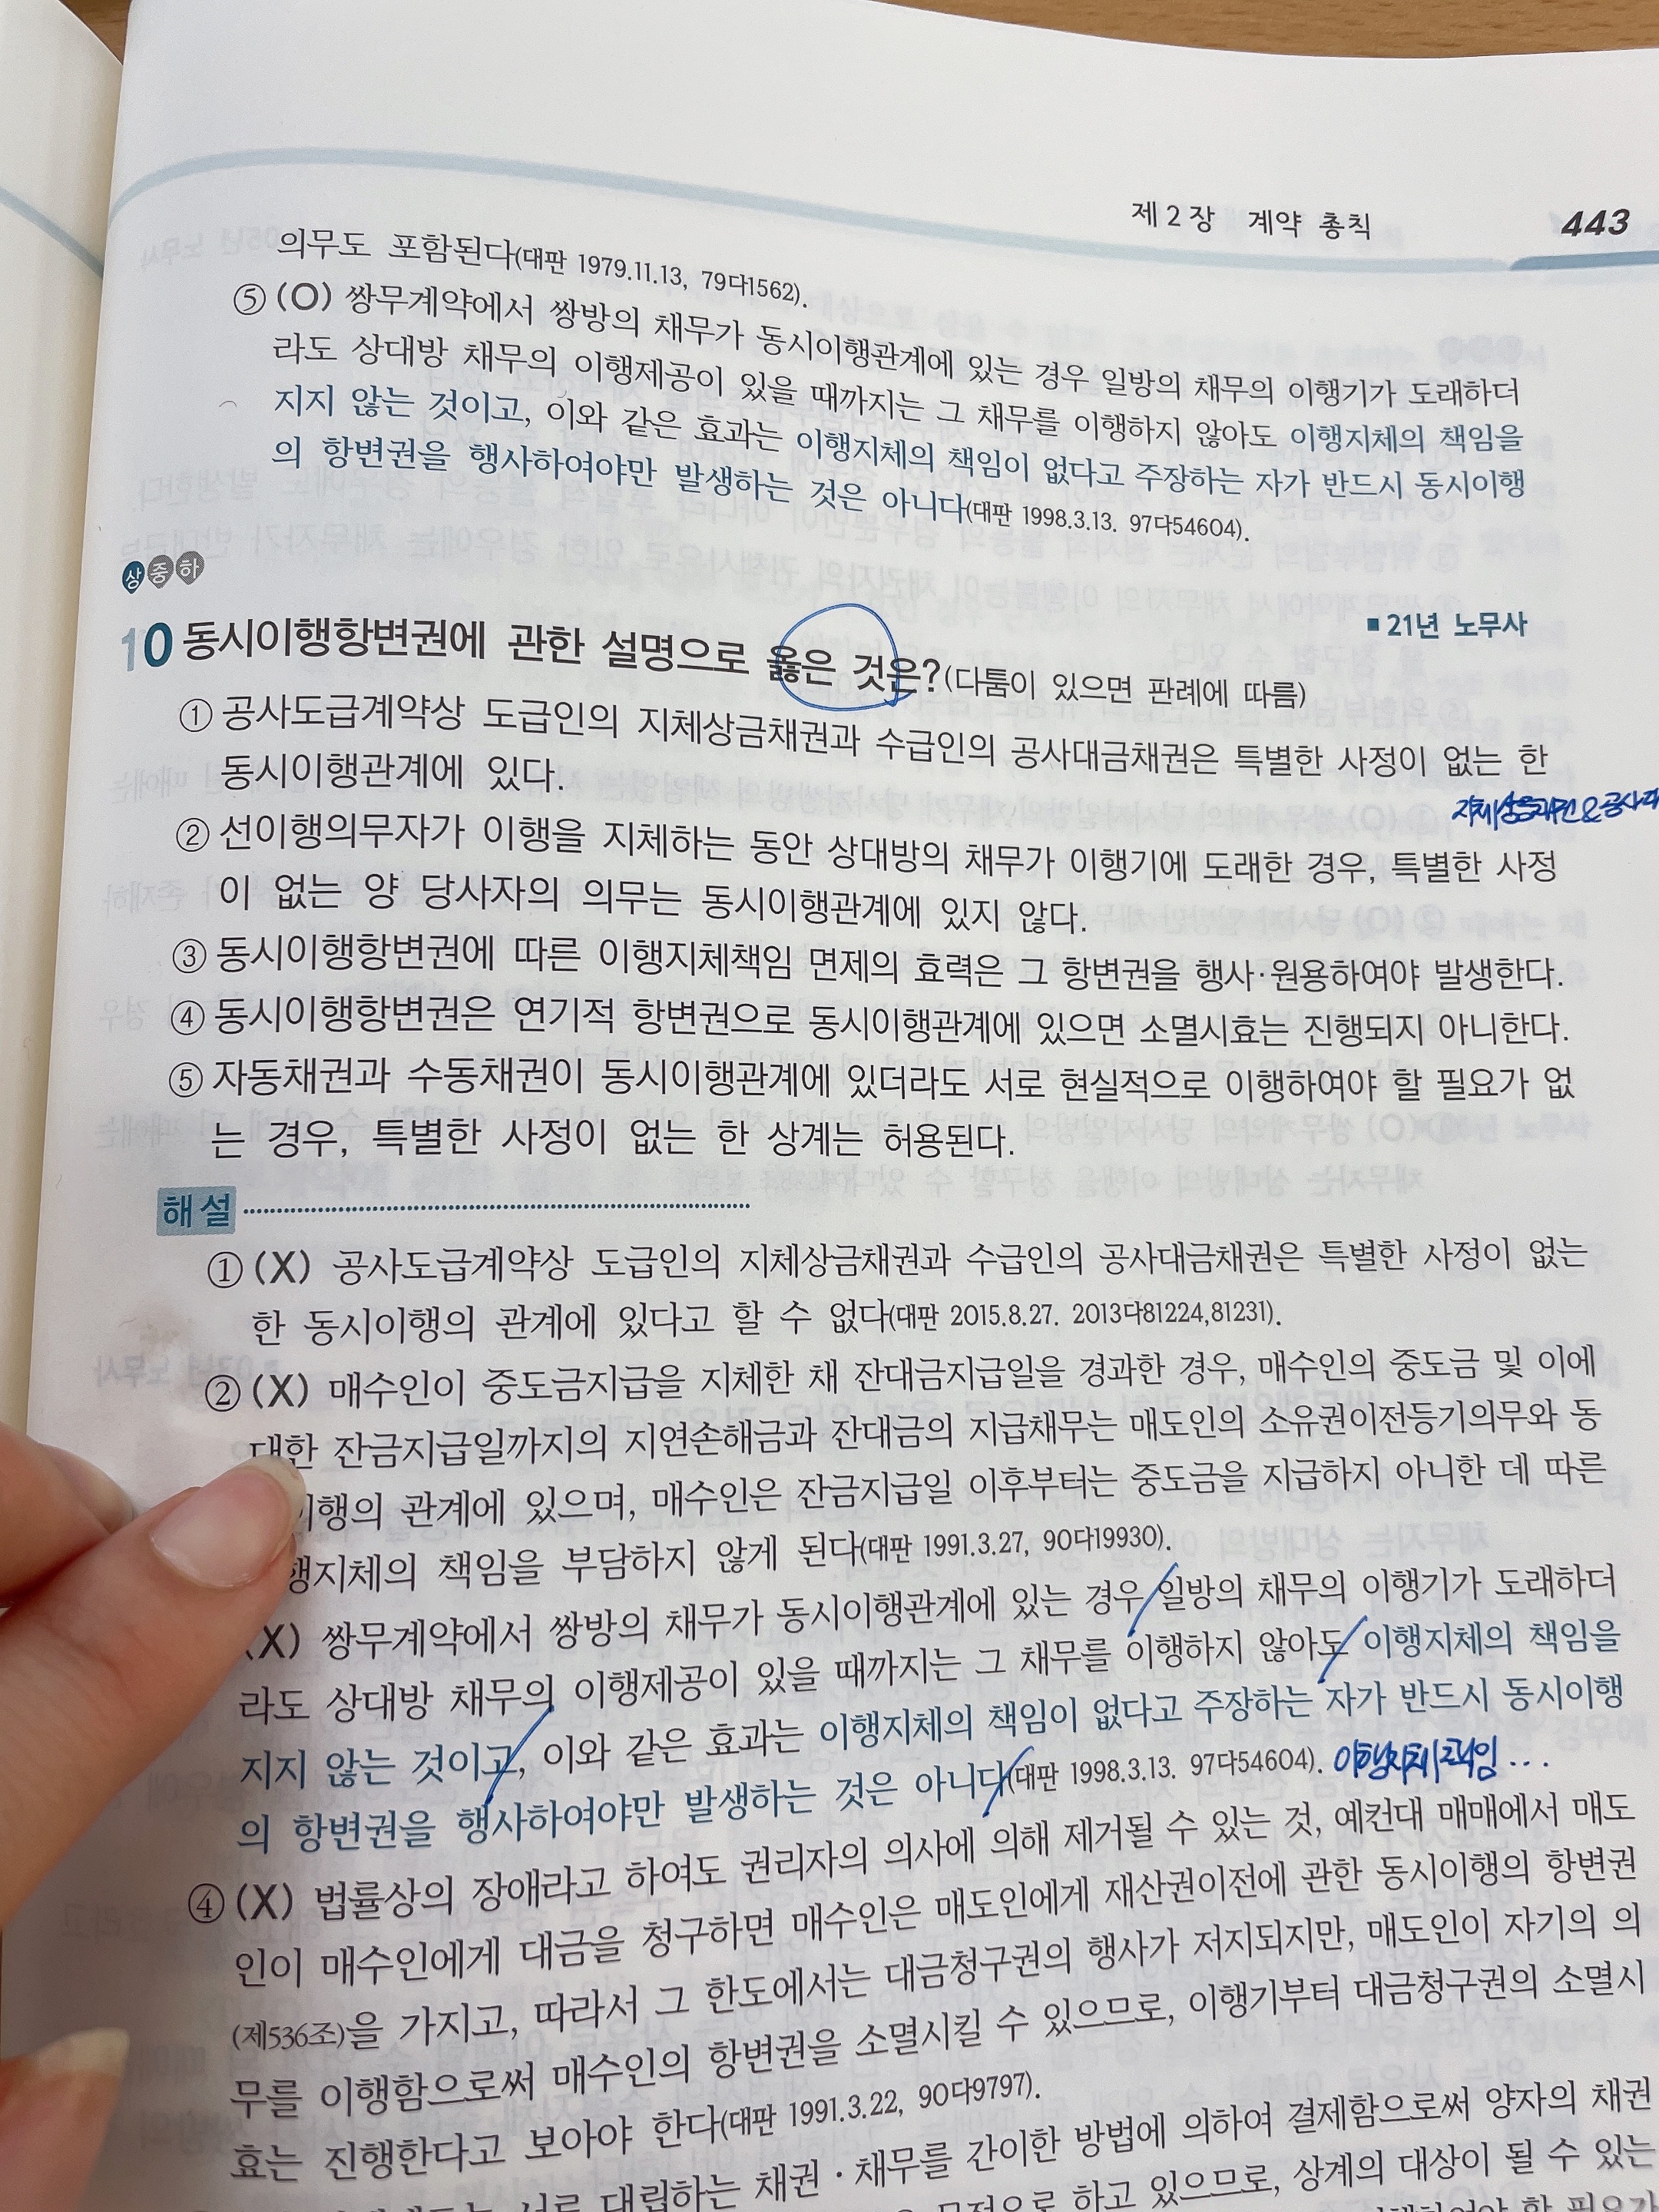 제 2 장 계약 총칙 443
의무도 포함된다(대판 1979.11.13, 79다1562).
⑤ (O) 쌍무계약에서 쌍방의 채무가 동시이행관계에 있는 경우 일방의 채무의 이행기가 도래하더
라도 상대방 채무의 이행제공이 있을 때까지는 그 채무를 이행하지 않아도 이행지체의 책임을
지지 않는 것이고, 이와 같은 효과는 이행지체의 책임이 없다고 주장하는 자가 반드시 동시이행
의 항변권을 행사하여야만 발생하는 것은 아니다(대판 1998.3.13. 97다54604).
상 중 하
10 동시이행항변권에 관한 설명으로 옳은 것은?(다툼이 있으면 판례에 따름)
■ 21년 노무사
① 공사도급계약상 도급인의 지체상금채권과 수급인의 공사대금채권은 특별한 사정이 없는 한
동시이행관계에 있다.
지체상금채권&공사대
② 선이행의무자가 이행을 지체하는 동안 상대방의 채무가 이행기에 도래한 경우, 특별한 사정
이 없는 양 당사자의 의무는 동시이행관계에 있지 않다.
③ 동시이행항변권에 따른 이행지체책임 면제의 효력은 그 항변권을 행사·원용하여야 발생한다.
④ 동시이행항변권은 연기적 항변권으로 동시이행관계에 있으면 소멸시효는 진행되지 아니한다.
⑤ 자동채권과 수동채권이 동시이행관계에 있더라도 서로 현실적으로 이행하여야 할 필요가 없
는 경우, 특별한 사정이 없는 한 상계는 허용된다.
해 설
① (X) 공사도급계약상 도급인의 지체상금채권과 수급인의 공사대금채권은 특별한 사정이 없는
한 동시이행의 관계에 있다고 할 수 없다(대판 2015.8.27. 2013다81224,81231).
② (X) 매수인이 중도금지급을 지체한 채 잔대금지급일을 경과한 경우, 매수인의 중도금 및 이에
대한 잔금지급일까지의 지연손해금과 잔대금의 지급채무는 매도인의 소유권이전등기의무와 동
이행의 관계에 있으며, 매수인은 잔금지급일 이후부터는 중도금을 지급하지 아니한 데 따른
행지체의 책임을 부담하지 않게 된다(대판 1991.3.27, 90다19930).
(X) 쌍무계약에서 쌍방의 채무가 동시이행관계에 있는 경우 일방의 채무의 이행기가 도래하더
라도 상대방 채무의 이행제공이 있을 때까지는 그 채무를 이행하지 않아도 이행지체의 책임을
지지 않는 것이고, 이와 같은 효과는 이행지체의 책임이 없다고 주장하는 자가 반드시 동시이행
의 항변권을 행사하여야만 발생하는 것은 아니다(대판 1998.3.13. 97다54604). 이행지체책임...
④ (X) 법률상의 장애라고 하여도 권리자의 의사에 의해 제거될 수 있는 것, 예컨대 매매에서 매도
인이 매수인에게 대금을 청구하면 매수인은 매도인에게 재산권이전에 관한 동시이행의 항변권
(제536조)을 가지고, 따라서 그 한도에서는 대금청구권의 행사가 저지되지만, 매도인이 자기의 의
무를 이행함으로써 매수인의 항변권을 소멸시킬 수 있으므로, 이행기부터 대금청구권의 소멸시
효는 진행한다고 보아야 한다(대판 1991.3.22, 90다9797).
서로 대립하는 채권·채무를 간이한 방법에 의하여 결제함으로써 양자의 채권
목적으로 하고 있으므로, 상계의 대상이 될 수 있는